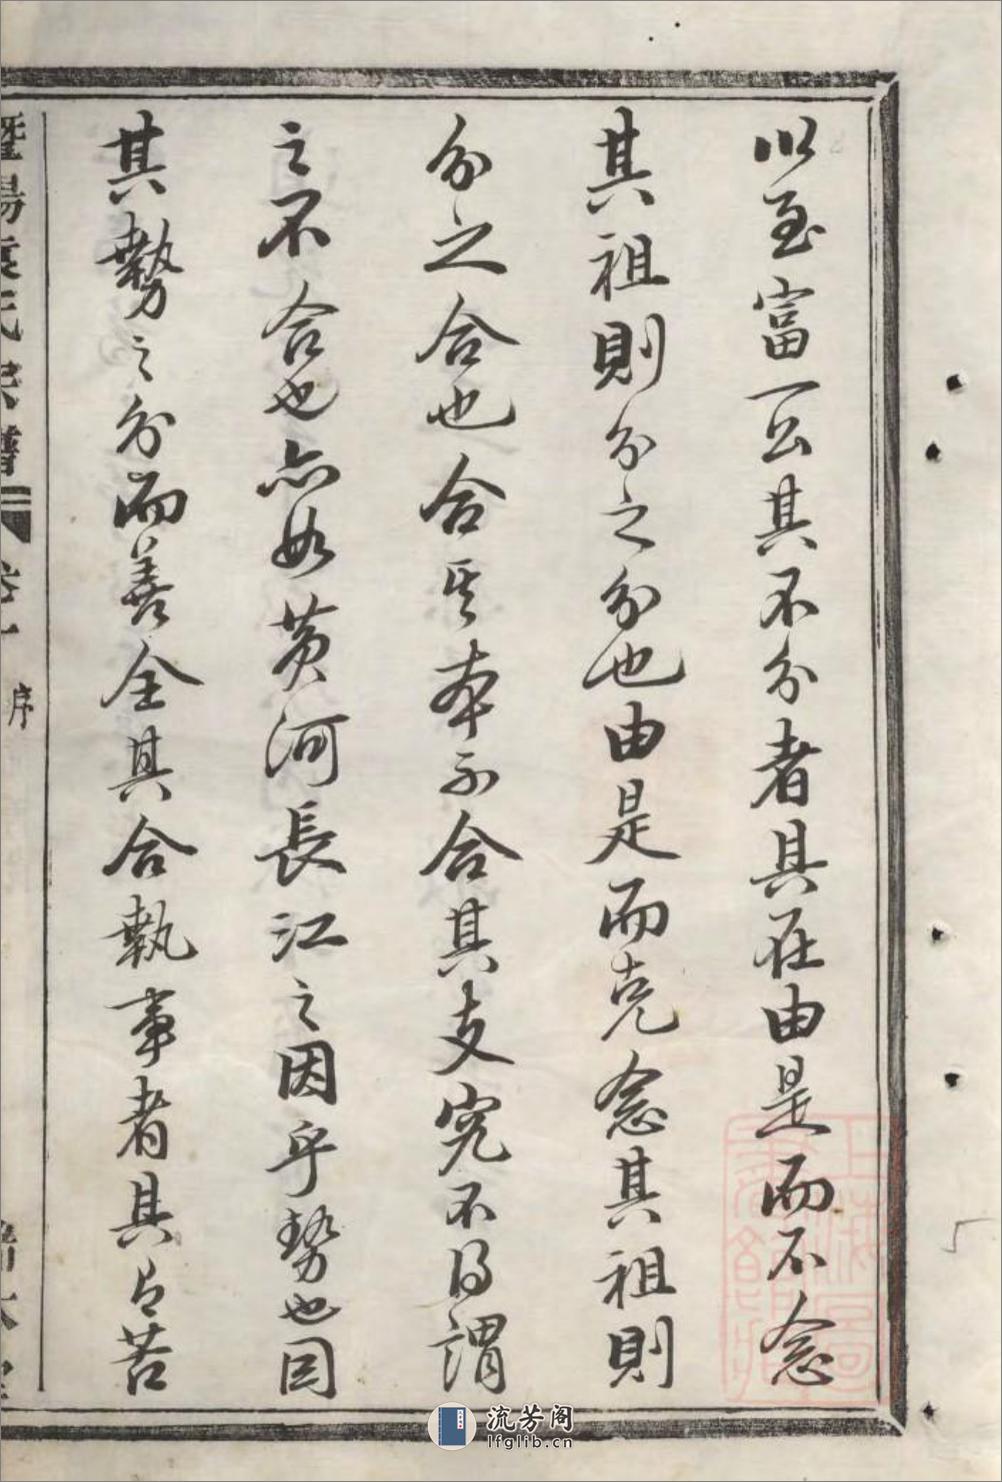 以至富一公其不分者具在由是而不念
其祖則分之分也由是而克念其祖則
分之合也合其本不合其支究不得謂
之不合也亦如黃河長江之因乎勢也因
其勢之分而善全其合執事者具有苦
暨陽袁氏宗譜 卷一 序
流芳阁
lfglib.cn